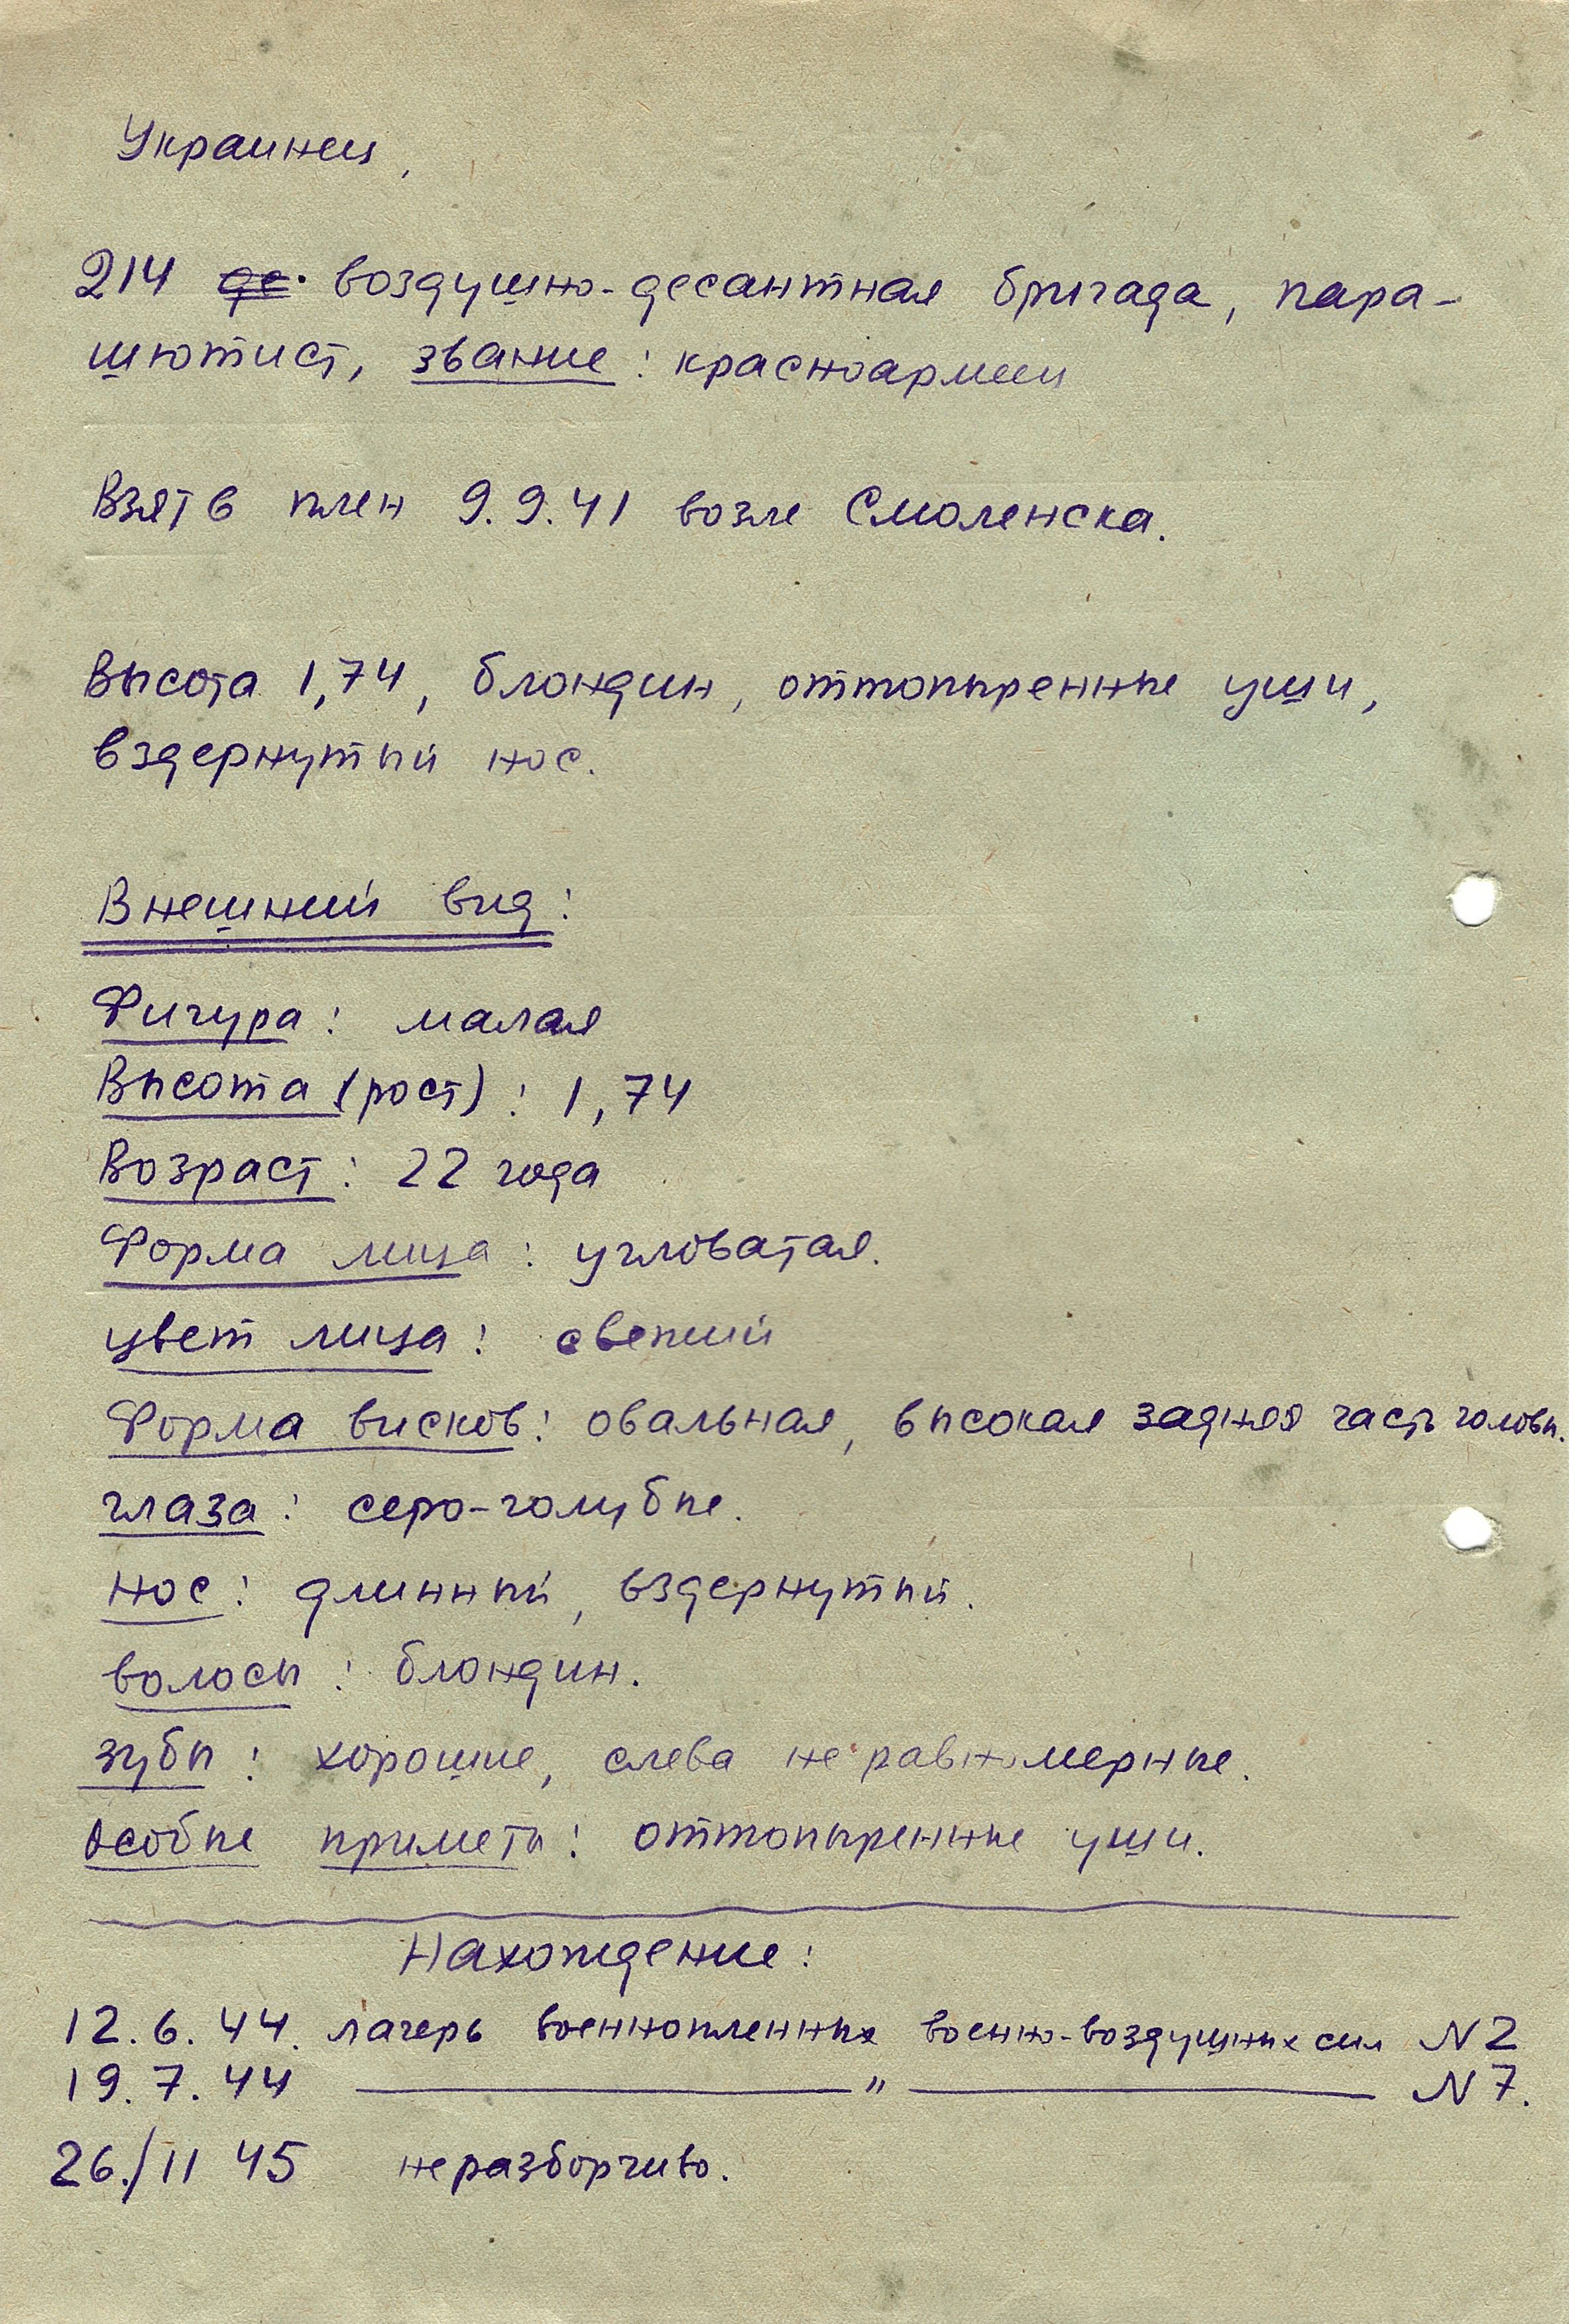 Украинец,
214 де. воздушно-десантная бригада, пара-
шютист, звание: красноармеец
Взят в плен 9.9.41 возле Смоленска.
Высота 1,74, блондин, оттопыренные уши,
вздернутый нос.
Внешний вид:
Фигура: малая
Высота (рост): 1,74
Возраст: 22 года
Форма лица: угловатая.
цвет лица: свежий
Форма висков: овальная, высокая задняя часть головы.
глаза: серо-голубые.
нос: длинный, вздернутый.
волосы: блондин.
зубы: хорошие, слева неравномерные.
особые приметы: оттопыренные уши.
Нахождение:
12.6.44. лагерь военнопленных военно-воздушных сил N 2
19.7.44 — " — N 7.
26./II 45 неразборчиво.